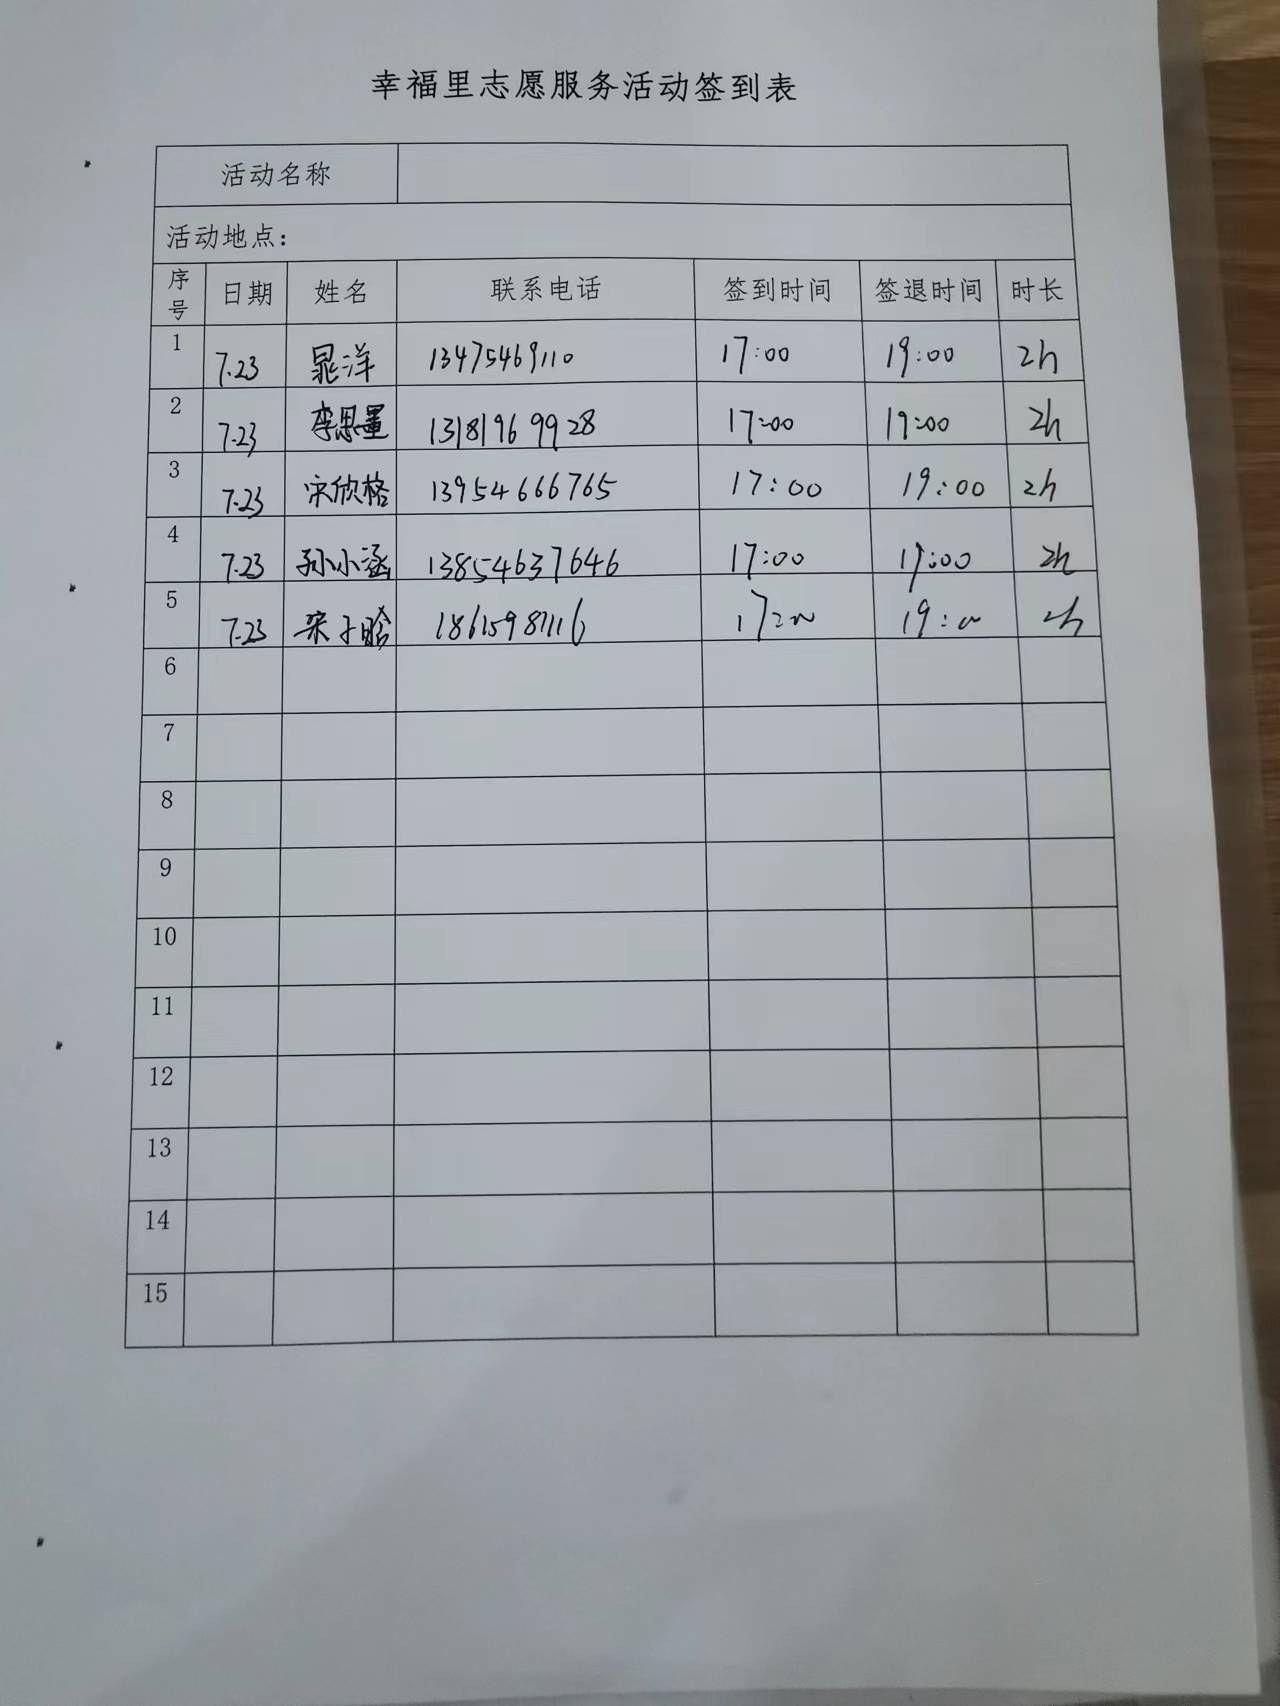 幸福里志愿服务活动签到表
活动名称
活动地点：
序号 日期 姓名 联系电话 签到时间 签退时间 时长
1 7.23 晁洋 13475469110 17:00 19:00 2h
2 7.23 李思墨 13181969928 17:00 19:00 2h
3 7.23 宋欣格 13954666765 17:00 19:00 2h
4 7.23 孙小涵 13854637646 17:00 19:00 2h
5 7.23 子晗 17:00 19:00 2h
6
7
8
9
10
11
12
13
14
15